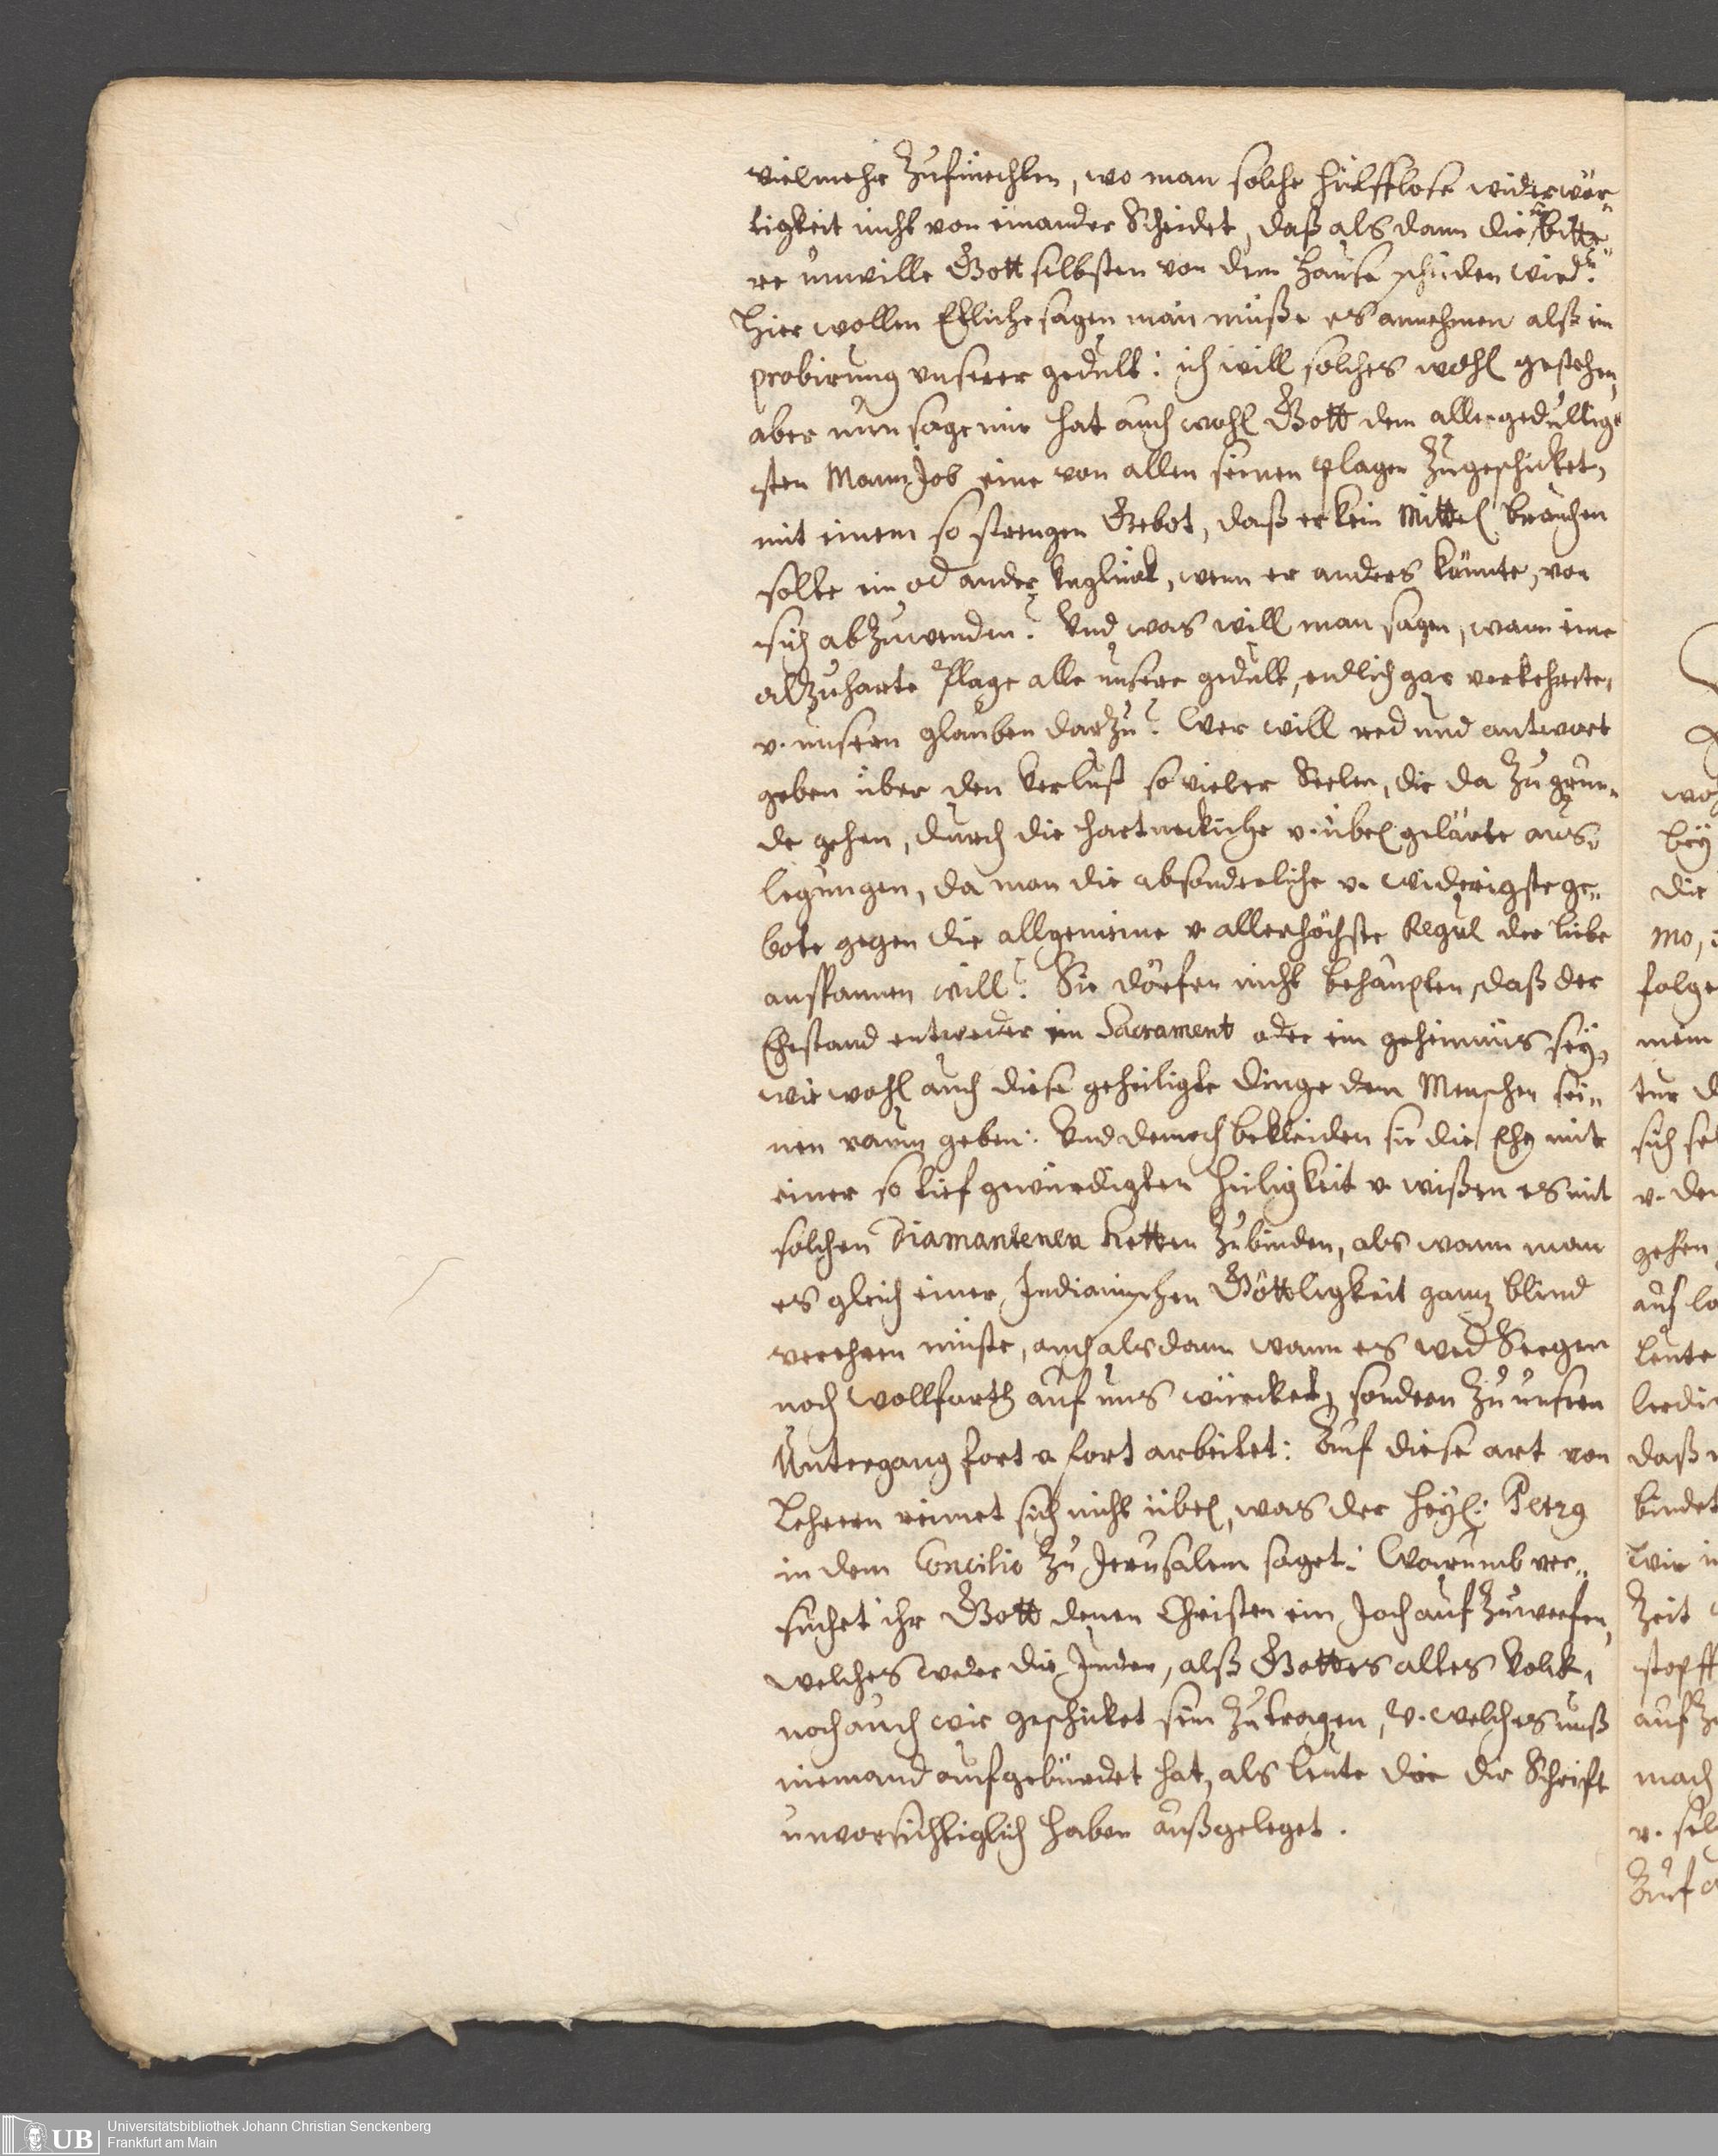 vielmehr Zufürchten, wo man solche hülfflose widerwer„
tigkeit nicht von einander Scheidet, daß als dann die bitte„
re unwille Gott selbsten von dem Hause scheiden wird?
Hier wollen Etliche sagen man müße es annehmen alß ein
probirung unserer gedult: ich will solches wohl gestehen,
aber nun sage mir hat auch wohl Gott dem allergedultig„
sten Mann Job eine von allen seinen plagen Zugeschicket,
mit einem so strengen Gebot, daß er kein Mittel brauchen
solte ein od ander Unglück, wenn er anders könnte, von
sich abZuwenden? Und was will man sagen, wann eine
alZuharte Plage alle unsere gedult, endlich gar verkehrete,
v. unsern glauben darZu? Wer will red und antwort
geben über den Verlust so vieler Seelen, die da Zu grun„
de gehen, durch die hartneckiche v. übel gelärte aus„
legungen, da man die absonderliche v. widrigste ge„
bote gegen die allgemeine v. allerhöchste Regul der liebe
anspannen will? Sie dörfen nicht behaupten, daß der
Ehestand entweder ein Sacrament oder ein geheimnüs sey,
wie wohl auch diese geheiligte Dinge dem Menschen sei„
nen raum geben: Und dennoch bekleiden sie die Ehe mit
einer so tief gewürdigten Heiligkeit v. wißen es mit
solchen Diamantenen Ketten Zubinden, als wann man
es gleich einer Indianischen Göttligkeit ganz blind
verehren müste, auch alsdann wann es wed Seegen
noch wollfarth auf uns würcket, sondern Zu unsren
Untergang fort v. fort arbeitet: Auf diese art von
Lehrern reimet sich nicht übel, was der Heyl: Petrg
in dem Concilio Zu Jerusalem saget: Warumb ver„
suchet ihr Gott denen Christen ein Joch auf Zuwerfen,
welches weder die Juden, alß Gottes altes Volck,
noch auch wir geschicket sein Zutragen, v. welches uns
niemand aufgebürdet hat, als leute die die Schrift
unvorsichtiglich haben außgeleget.
woh
bey
die
mo,
folge
mein
tur d
sich sel
v. den
gehen
auf la
leute
lerdi
daß
bindet
wie i
Zeit
stopff
auf Zu
mach
v. sel
Auf a
UB Universitätsbibliothek Johann Christian Senckenberg
Frankfurt am Main